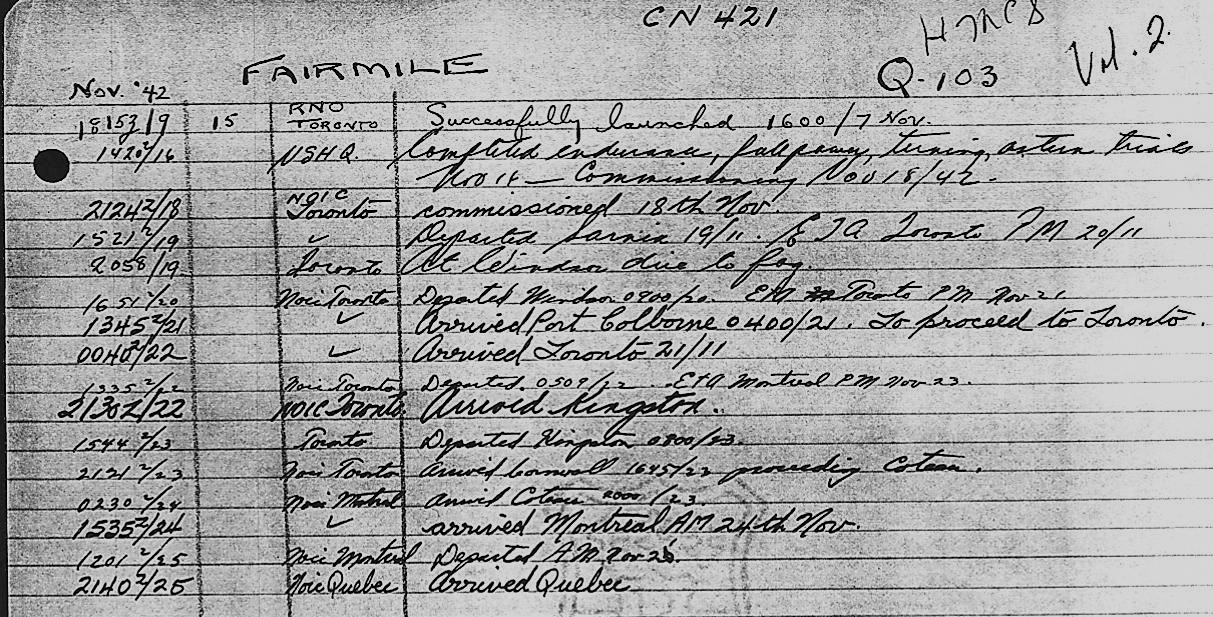 CN 421
HMCS
Vol. 2.
FAIRMILE
Q-103
Nov. '42
18153/9 15 RNO TORONTO Successfully launched 1600/7 Nov.
1420Z/16 NSHQ. Completed endurance, full power, turning, astern trials
Nov — Commissioning Nov 18/42.
2124Z/18 NOIC Toronto commissioned 18th Nov.
1521Z/19 ✓ Departed Sarnia 19/11. ETA Toronto PM 20/11
2058/19 Toronto At Windsor due to fog.
1651Z/20 Noic Toronto Departed Windsor 0900/20. ETA Toronto PM Nov 21
1345Z/21 ✓ Arrived Port Colborne 0400/21. To proceed to Toronto.
0040Z/22 ✓ Arrived Toronto 21/11
1335Z/22 Noic Toronto Departed. 0509/22. ETA Montreal PM Nov 23.
2130Z/22 NOIC Toronto Arrived Kingston.
1544Z/23 Toronto Departed Kingston 0800/23.
2121Z/23 Noic Toronto Arrived Cornwall 1645/23 proceeding Coteau.
0230Z/24 Noic Montreal Arrived Coteau 2000/23
1535Z/24 ✓ arrived Montreal AM 24th Nov.
1201Z/25 Noic Montreal Departed AM Nov 25.
2140Z/25 Noic Quebec Arrived Quebec